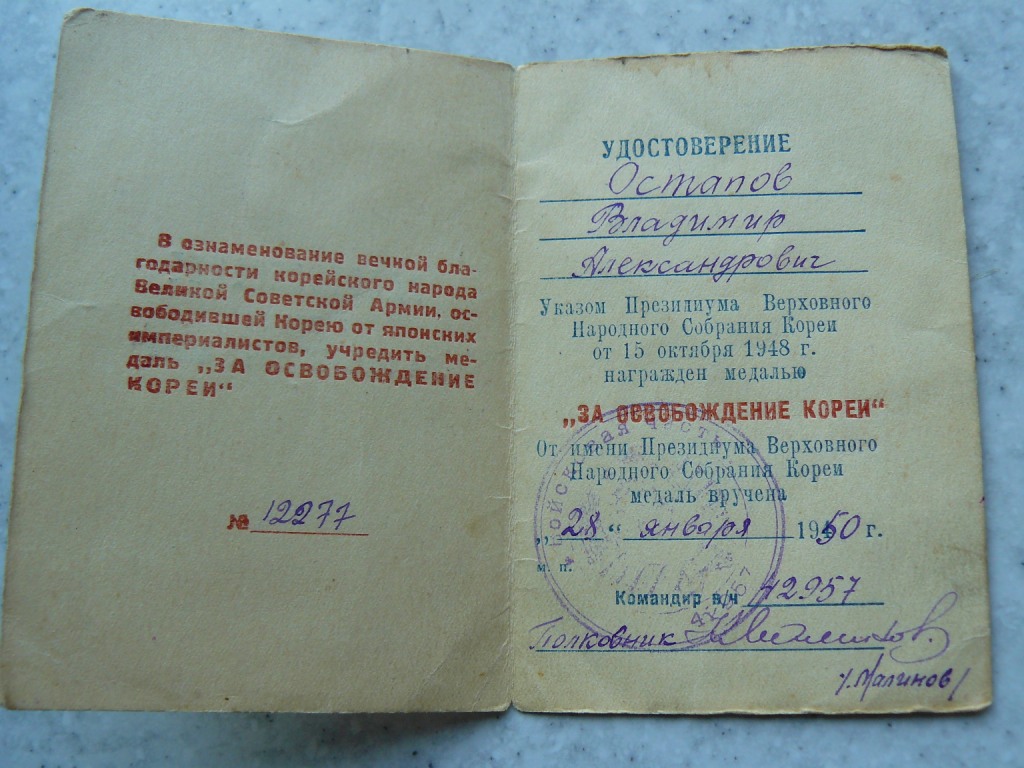 В ознаменование вечной бла-
годарности корейского народа
Великой Советской Армии, ос-
вободившей Корею от японских
империалистов, учредить ме-
даль „ЗА ОСВОБОЖДЕНИЕ
КОРЕИ“
№ 12277
УДОСТОВЕРЕНИЕ
Остапов
Владимир
Александрович
Указом Президиума Верховного
Народного Собрания Кореи
от 15 октября 1948 г.
награжден медалью
„ЗА ОСВОБОЖДЕНИЕ КОРЕИ“
От имени Президиума Верховного
Народного Собрания Кореи
медаль вручена
„28“ января 1950 г.
м. п.
Войсковая часть
Командир в/ч 42957
Полковник
/Малинов/